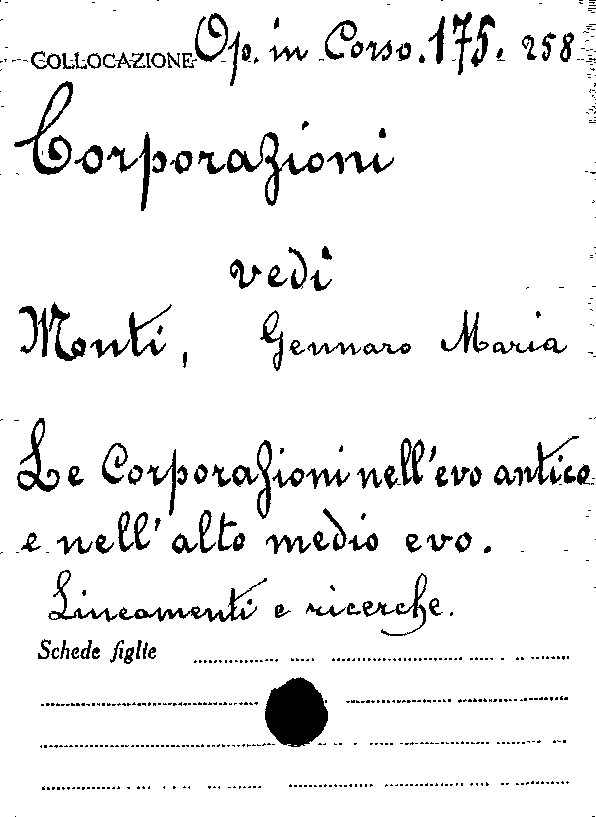 COLLOCAZIONE Op. in Corso. 175. 258
Corporazioni
vedi
Monti, Gennaro Maria
Le Corporazioni nell'evo antico
e nell'alto medio evo.
Lineamenti e ricerche.
Schede figlie